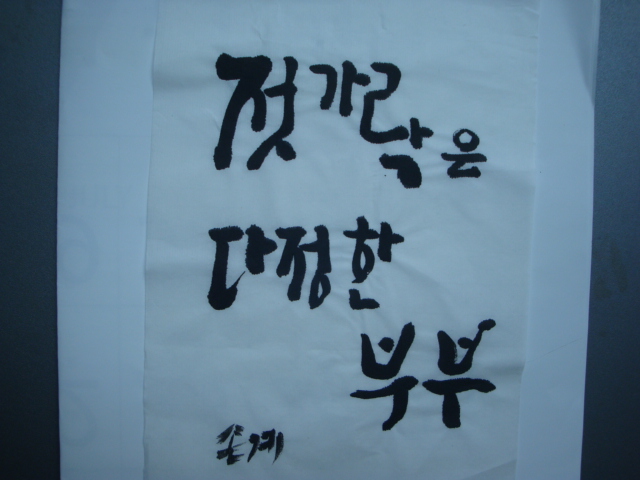 젓가락은
다정한
부부